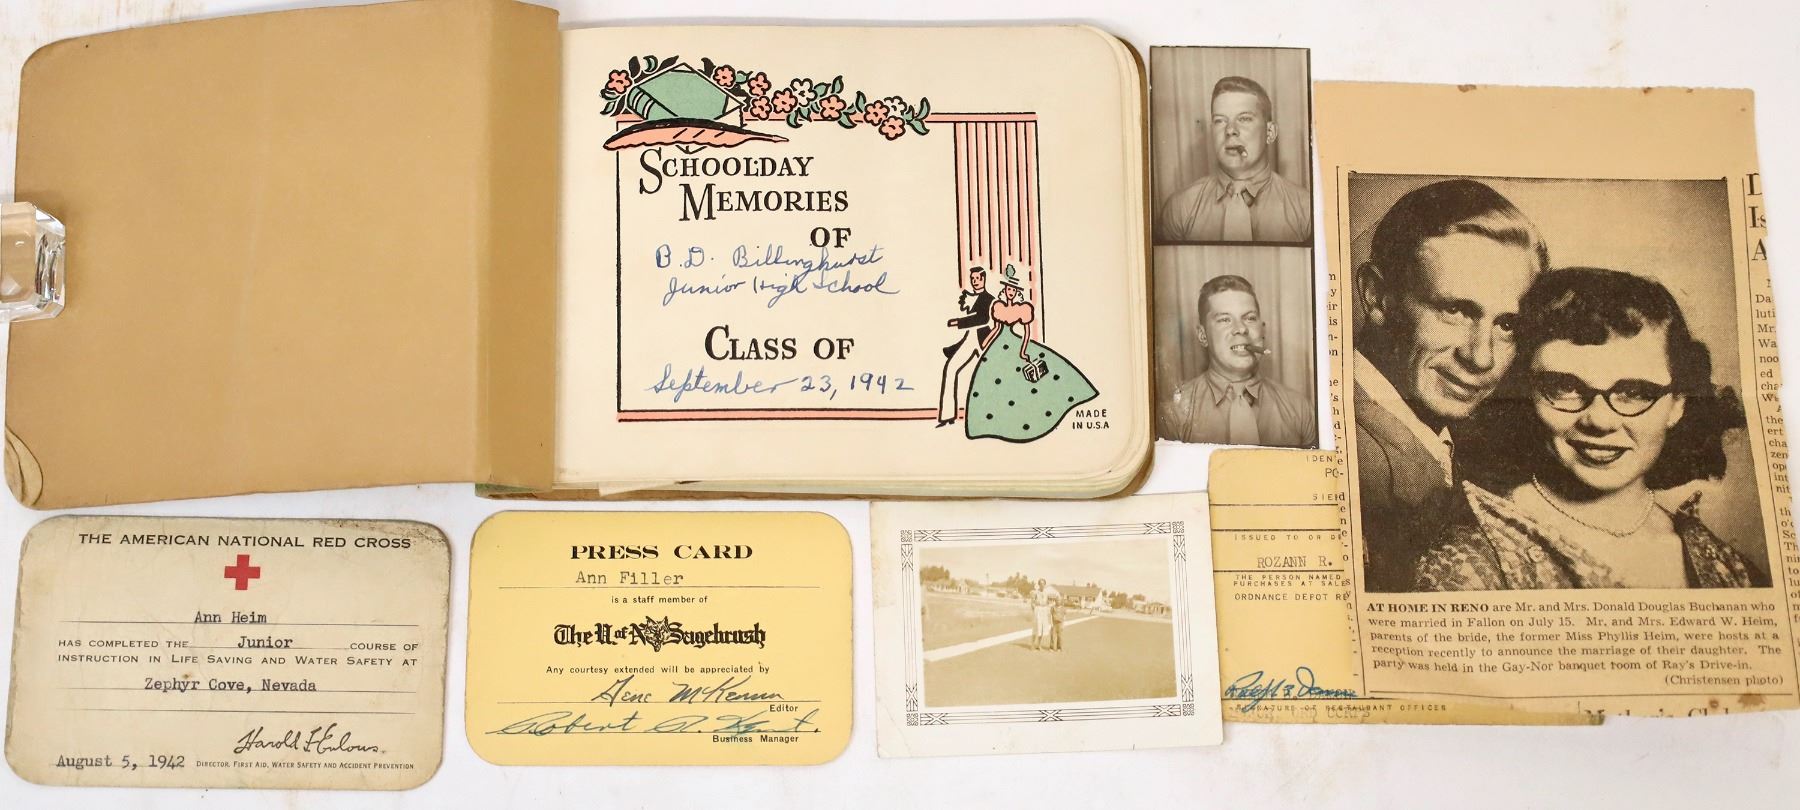 SCHOOLDAY
MEMORIES
OF
B.D. Billinghurst
Junior High School
CLASS OF
September 23, 1942
MADE
IN U.S.A
THE AMERICAN NATIONAL RED CROSS
Ann Heim
HAS COMPLETED THE Junior COURSE OF
INSTRUCTION IN LIFE SAVING AND WATER SAFETY AT
Zephyr Cove, Nevada
August 5, 1942 DIRECTOR, FIRST AID, WATER SAFETY AND ACCIDENT PREVENTION
PRESS CARD
Ann Filler
is a staff member of
The U of N Sagebrush
Any courtesy extended will be appreciated by
Gene McKenna
Editor
Robert A.
Business Manager
ISSUED TO OR
ROZANN R.
THE PERSON NAMED
PURCHASES AT
ORDNANCE DEPOT
SIGNATURE OF RESTAURANT OFFICER
AT HOME IN RENO are Mr. and Mrs. Donald Douglas Buchanan who
were married in Fallon on July 15. Mr. and Mrs. Edward W. Heim,
parents of the bride, the former Miss Phyllis Heim, were hosts at a
reception recently to announce the marriage of their daughter. The
party was held in the Gay-Nor banquet room of Ray's Drive-in.
(Christensen photo)